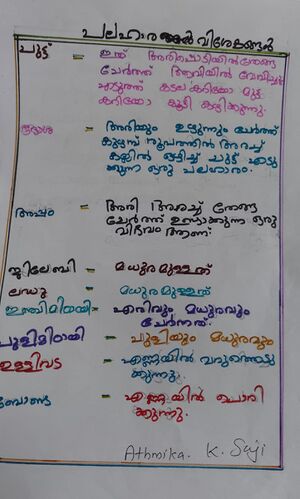 പലഹാരങ്ങൾ വിശേഷങ്ങൾ
പുട്ട് - ഇത് അരിപ്പൊടിയിൽ തേങ്ങ
ചേർത്ത് ആവിയിൽ വേവിച്ച്
എടുത്ത് കടലക്കറിയോ മുട്ട
കറിയോ കൂട്ടി കഴിക്കുന്നു.
ദോശ - അരിയും ഉഴുന്നും ചേർത്ത്
കുഴമ്പ് രൂപത്തിൽ അരച്ച്
കല്ലിൽ ഒഴിച്ച് ചുട്ട് എടു
ക്കുന്ന ഒരു പലഹാരം.
അപ്പം - അരി അരച്ച് തേങ്ങ
ചേർത്ത് ഉണ്ടാക്കുന്ന ഒരു
വിഭവം ആണ്.
ജിലേബി - മധുരമുള്ളത്
ലഡു - മധുരമുള്ളത്
ഇഞ്ചിമിഠായി - എരിവും മധുരവും
ചേർന്നത്.
പുളിമിഠായി - പുളിയും മധുരവും
ഉള്ളിവട - എണ്ണയിൽ വറുത്തെടു
ക്കുന്നു.
ബോണ്ട - എണ്ണയിൽ പൊരി
ക്കുന്നു.
Athmika. K. Saji